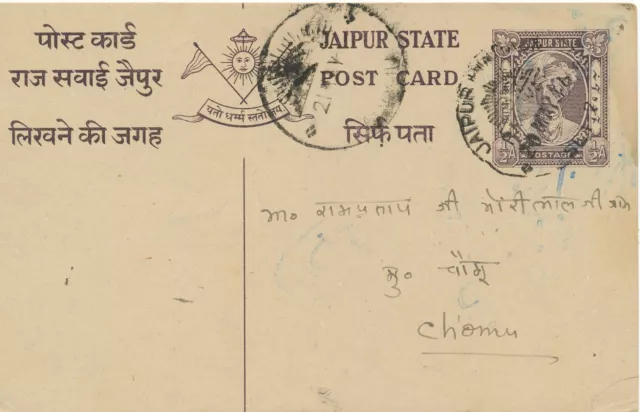 पोस्ट कार्ड
राज सवाई जैपुर
लिखने की जगह
यतो धर्म्म स्ततो जय
JAIPUR STATE
POST CARD
सिर्फ पता
JAIPUR STATE
POSTAGE
½A ½A
JAIPUR
21
मा० रामप्रताप जी मोरीलाल जी
मु० चौमू
Chomu